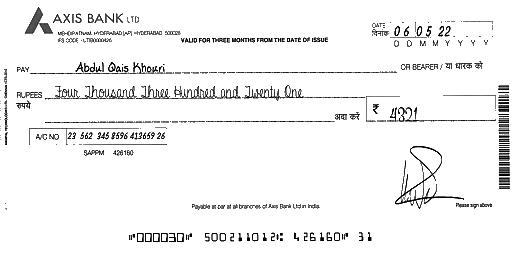 AXIS BANK LTD
MEHDIPATNAM, HYDERABAD [AP] HYDERABAD 500028
IFS CODE - UTIB0000426
VALID FOR THREE MONTHS FROM THE DATE OF ISSUE
DATE
दिनांक 06 05 22
D D M M Y Y Y Y
PAY Abdul Qais Khouri OR BEARER / या धारक को
RUPEES Four Thousand Three Hundred and Twenty One
रुपये अदा करें ₹ 4321
A/C NO 23 562 345 8596 413659 26
SAPPM 426160
Payable at par at all branches of Axis Bank Ltd in India.
Please sign above
⑈000030⑈ 500211012⑆ 426160⑈ 31